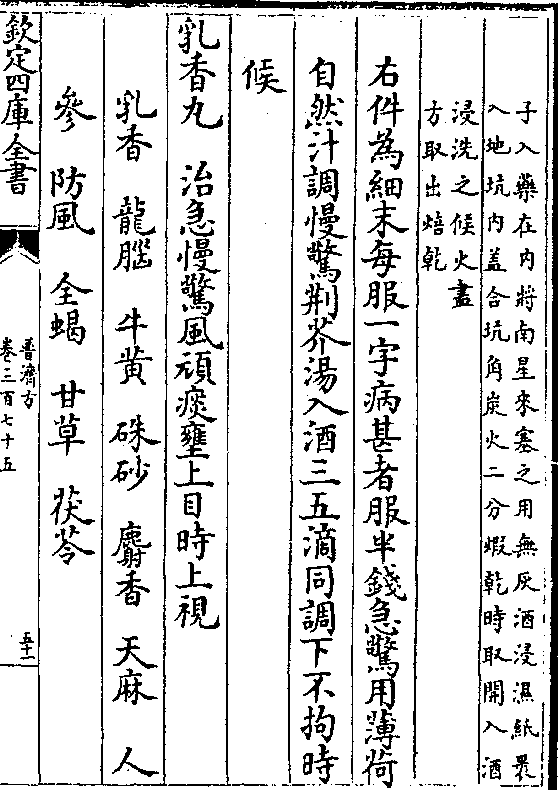 子入藥在内將南星來塞之用無灰酒浸濕紙裹
入地坑内盖合坑角炭火二分蝦乾時取開入酒
浸洗之候火盡
方取出焙乾
右件為細末每服一字病甚者服半錢急驚用薄荷
自然汁調慢驚荆芥湯入酒三五滴同調下不拘時
候
乳香丸　治急慢驚風頑痰壅上目時上視
乳香　龍腦　牛黄　硃砂　麝香　天麻　人
參　防風　全蝎　甘草　茯苓
欽定四庫全書
普濟方
卷三百七十五
五十一